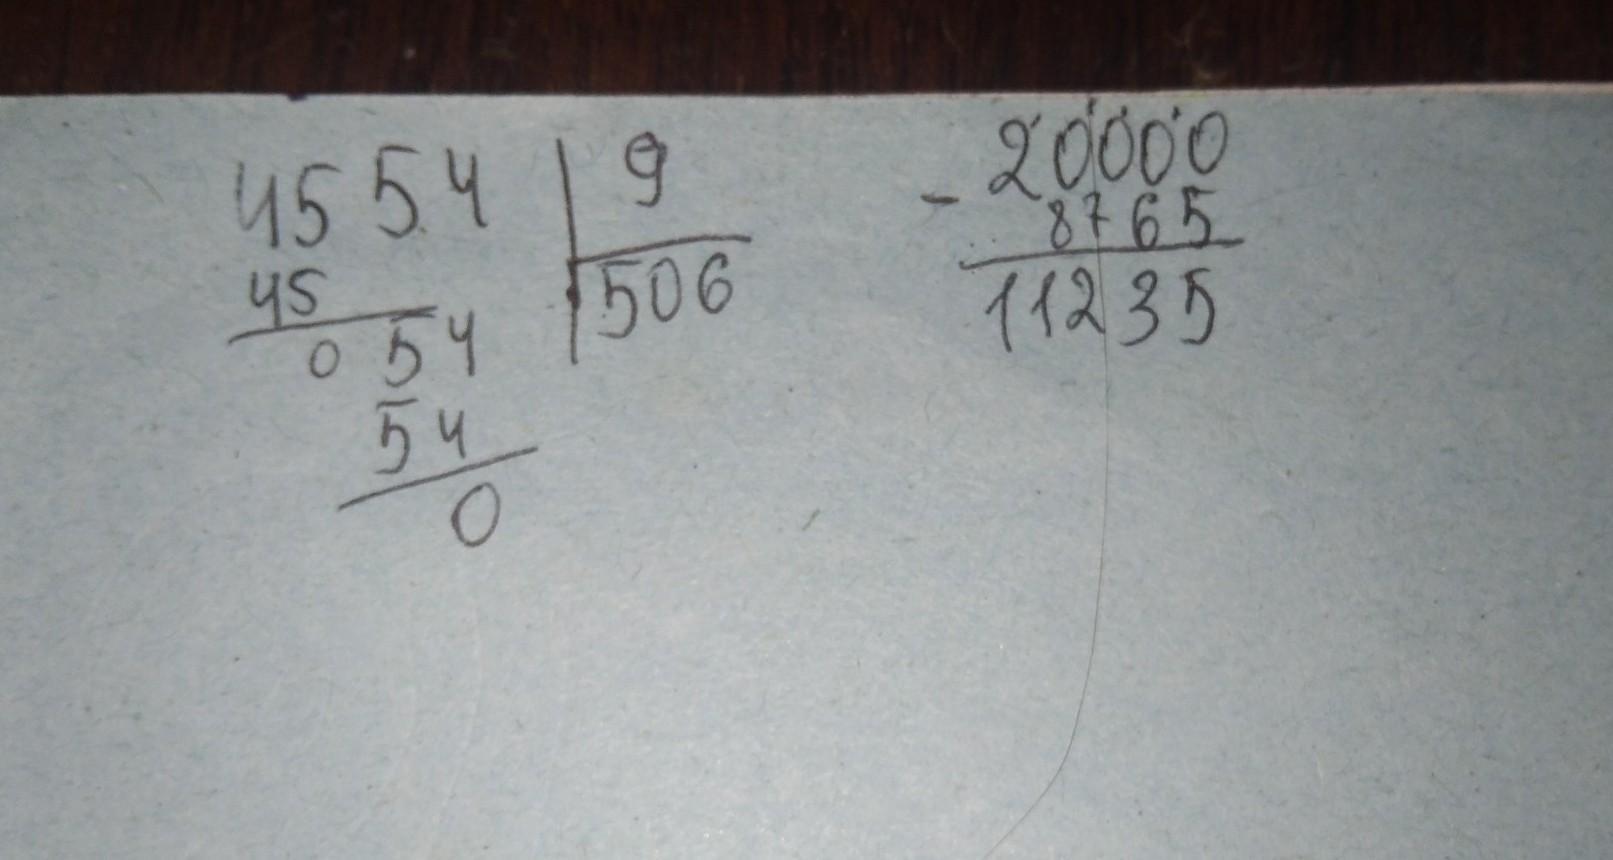 4554 | 9
45 506
054
54
0
20000
- 8765
11235